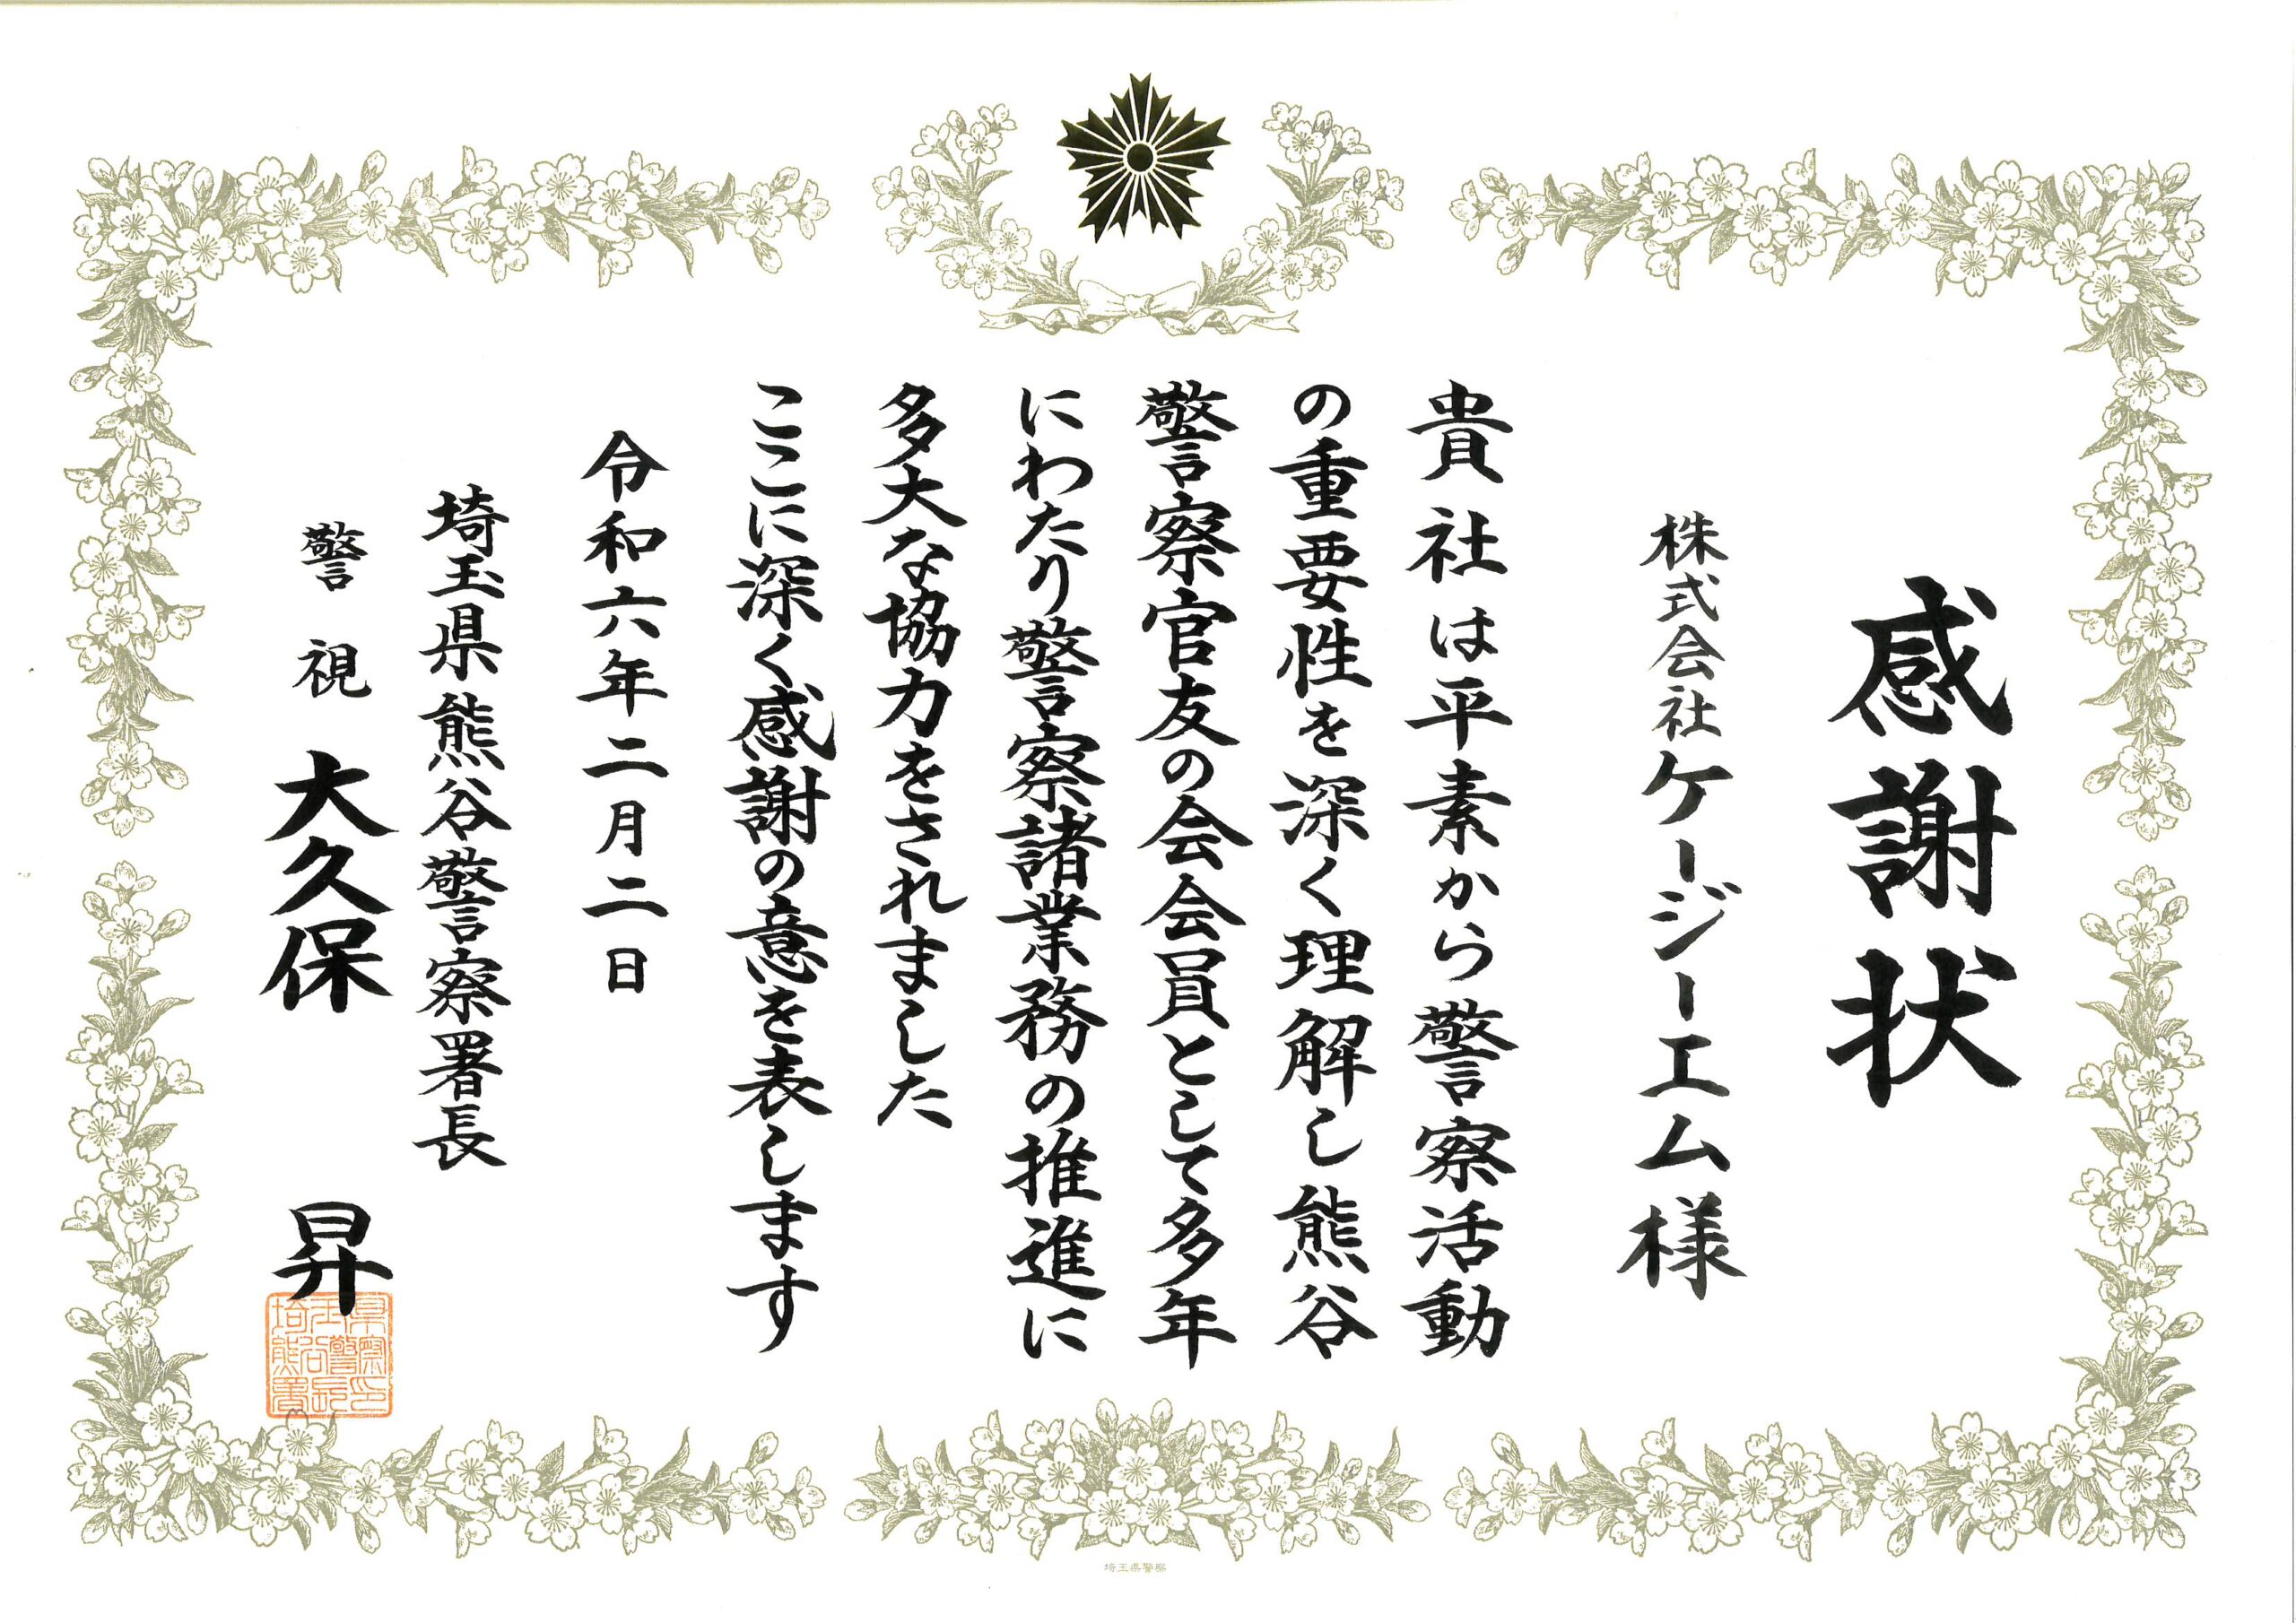 感謝状
株式会社ケージーエム様
貴社は平素から警察活動
の重要性を深く理解し熊谷
警察官友の会会員として多年
にわたり警察諸業務の推進に
多大な協力をされました
ここに深く感謝の意を表します
令和六年二月二日
埼玉県熊谷警察署長
警視 大久保 昇
埼玉県熊谷警察署長印
埼玉県警察